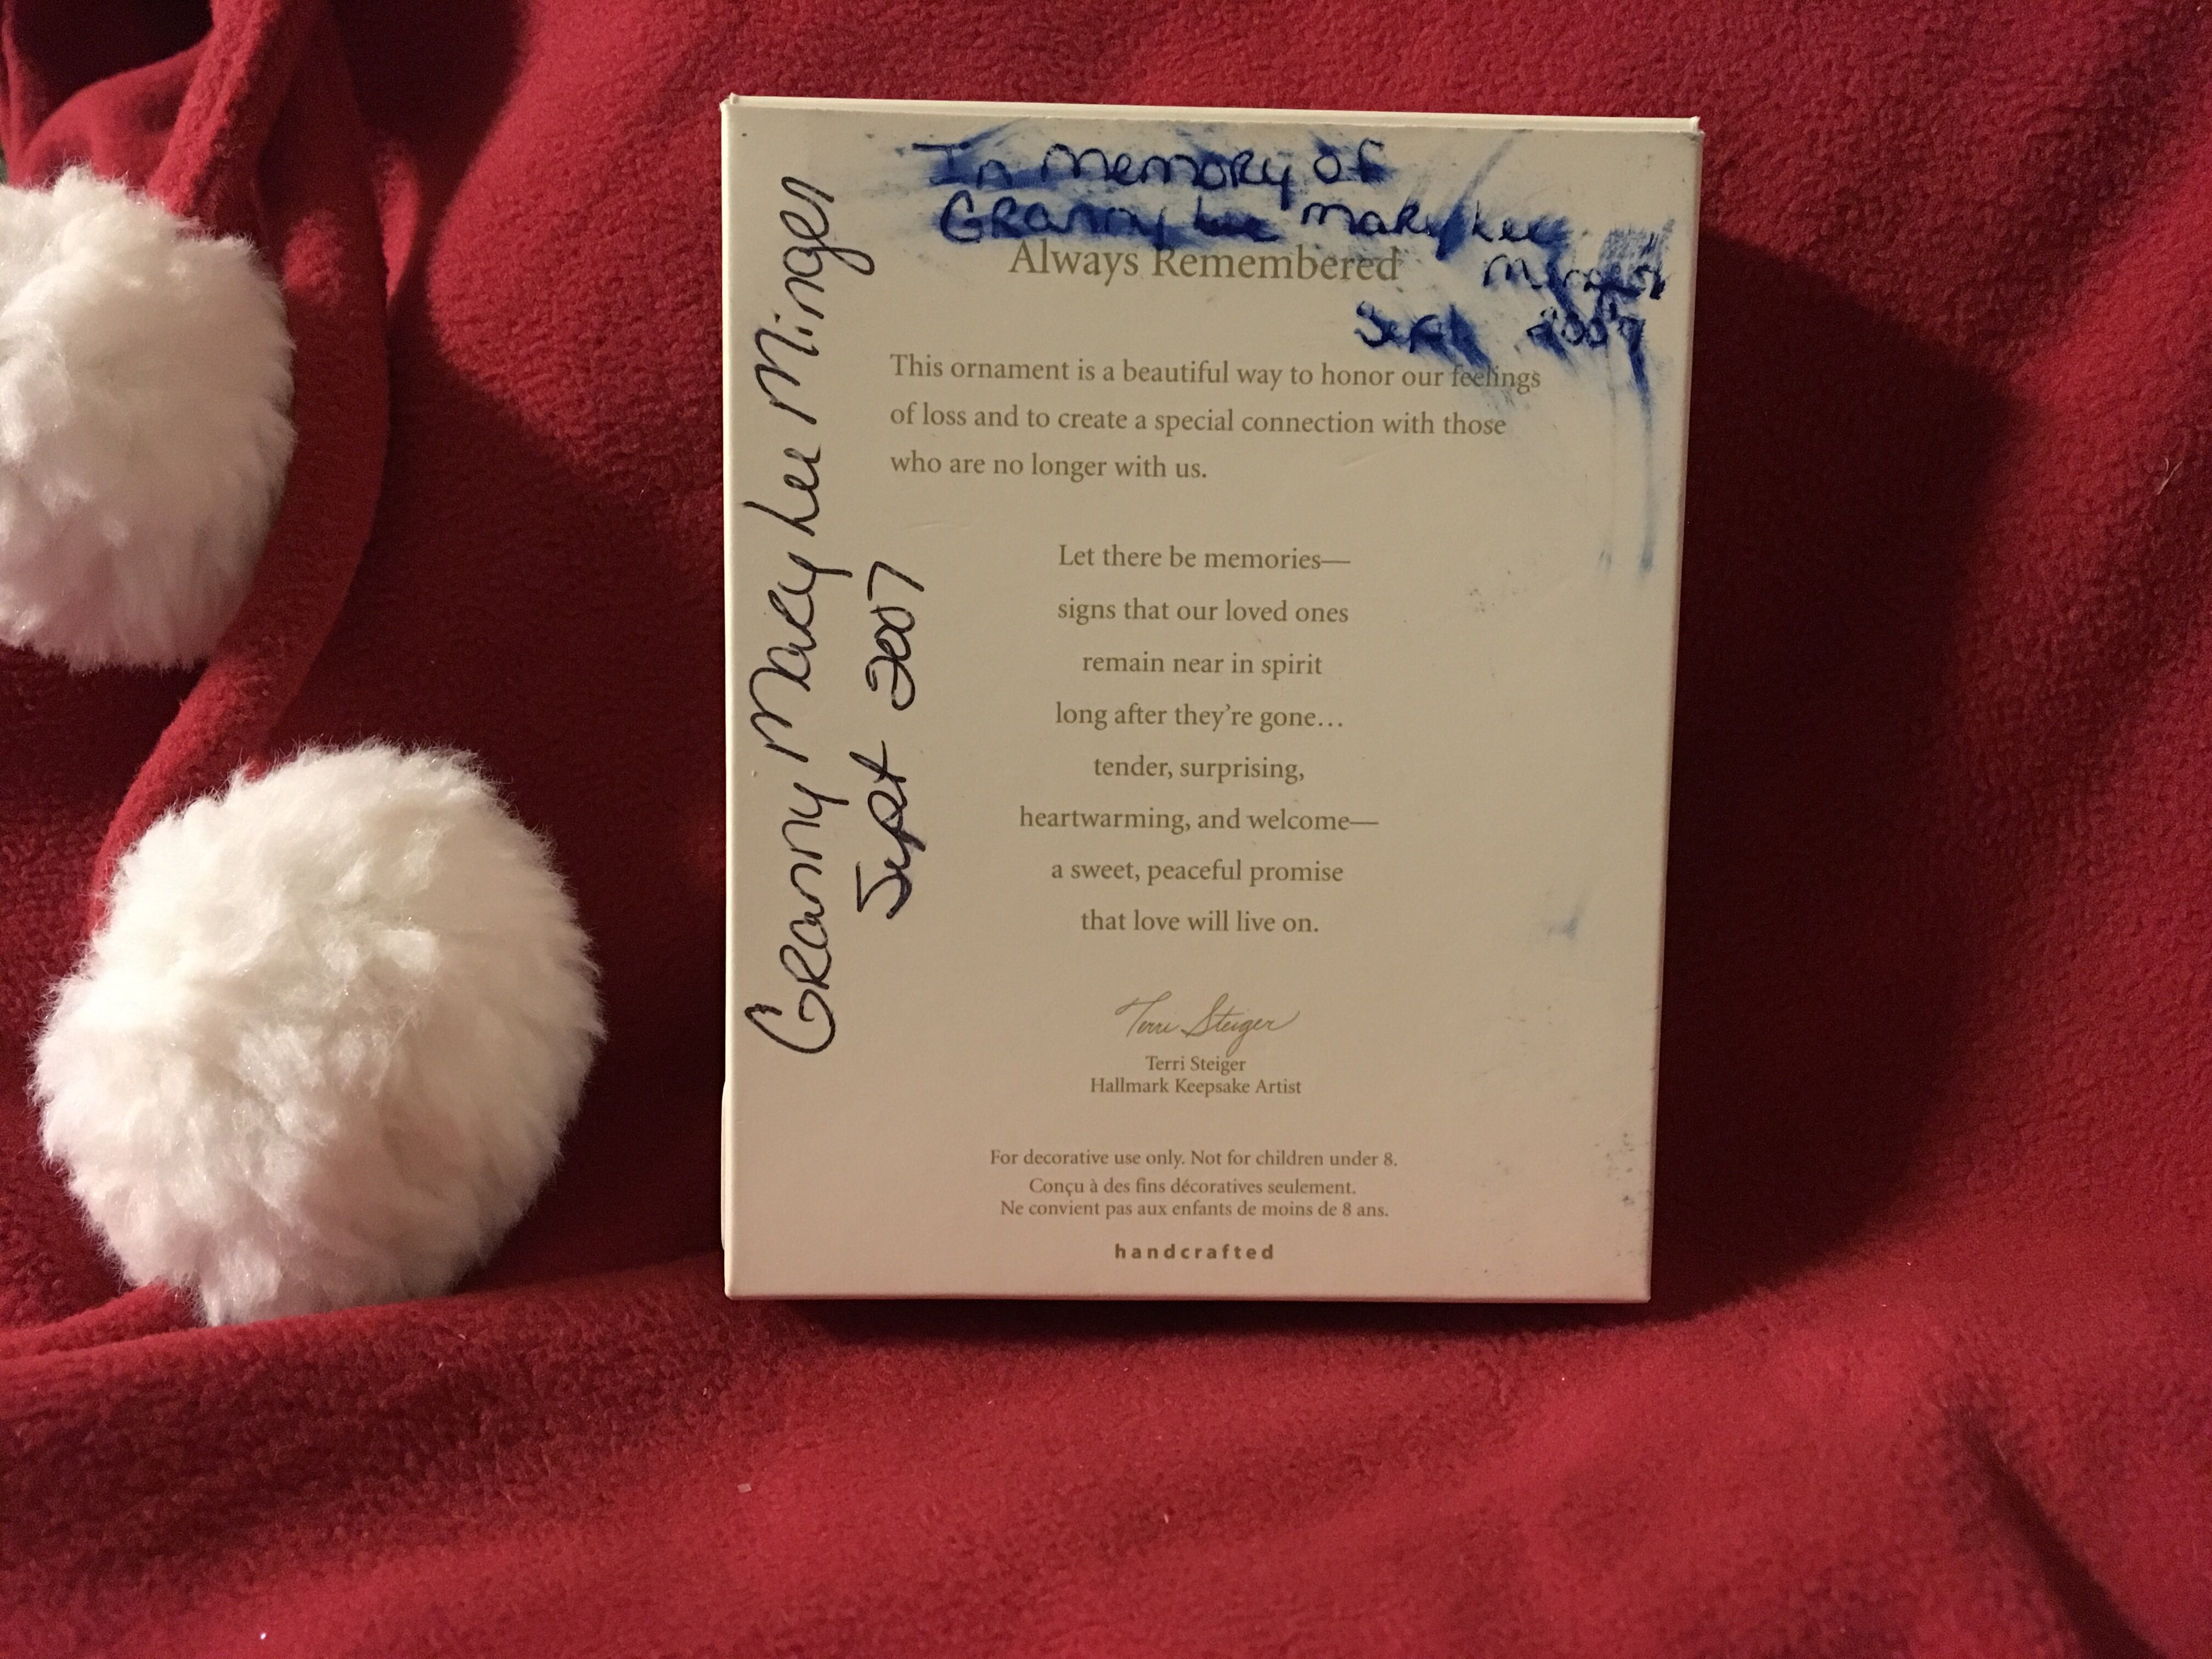 In memory of
Granny Lee Mary Lee
Minger
Sept 2007
Granny Mary Lee Minger
Sept 2007
Always Remembered
This ornament is a beautiful way to honor our feelings
of loss and to create a special connection with those
who are no longer with us.
Let there be memories—
signs that our loved ones
remain near in spirit
long after they're gone...
tender, surprising,
heartwarming, and welcome—
a sweet, peaceful promise
that love will live on.
Terri Steiger
Terri Steiger
Hallmark Keepsake Artist
For decorative use only. Not for children under 8.
Conçu à des fins décoratives seulement.
Ne convient pas aux enfants de moins de 8 ans.
handcrafted